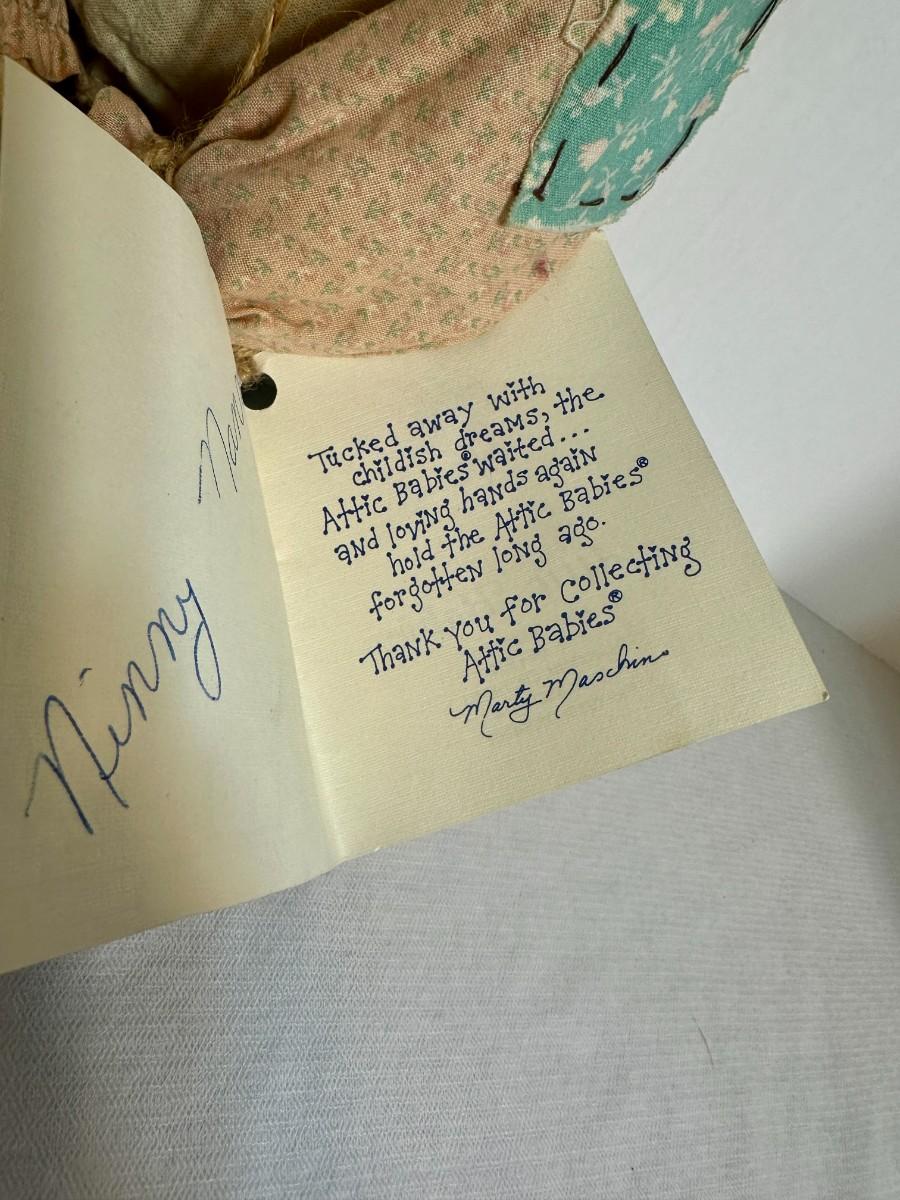 Ninny
Tucked away with
childish dreams, the
Attic Babies® waited...
and loving hands again
hold the Attic Babies®
forgotten long ago.
Thank you for collecting
Attic Babies®
Marty Maschino